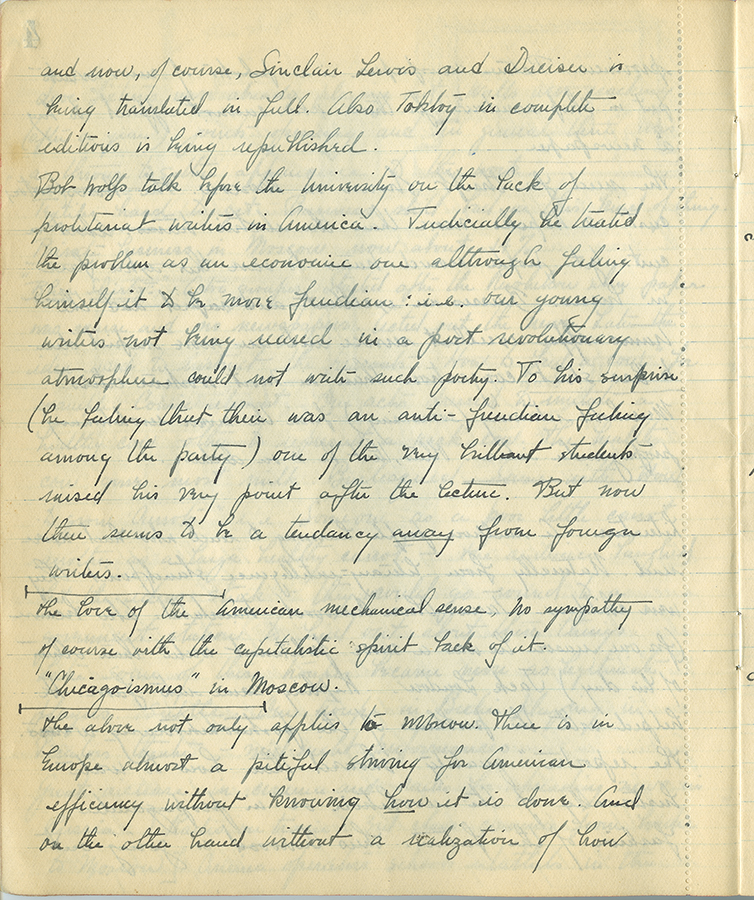 and now, of course, Sinclair Lewis and Dreiser is
being translated in full. Also Tolstoy in complete
editions is being republished.
Bob Wolfs talk before the University on the lack of
proletariat writers in America. Judicially he treated
the problem as an economic one although feeling
himself it to be more freudian : i.e. our young
writers not being reared in a post revolutionary
atmosphere could not write such poetry. To his surprise
(he feeling that their was an anti-freudian feeling
among the party) one of the very brilliant students
raised his very point after the lecture. But now
there seems to be a tendancy away from foreign
writers.
The love of the American mechanical sense, no sympathy
of course with the capitalistic spirit back of it.
"Chicagoismus" in Moscow.
The above not only applies to Moscow. There is in
Europe almost a pitiful striving for American
efficiency without knowing how it is done. And
on the other hand without a realization of how